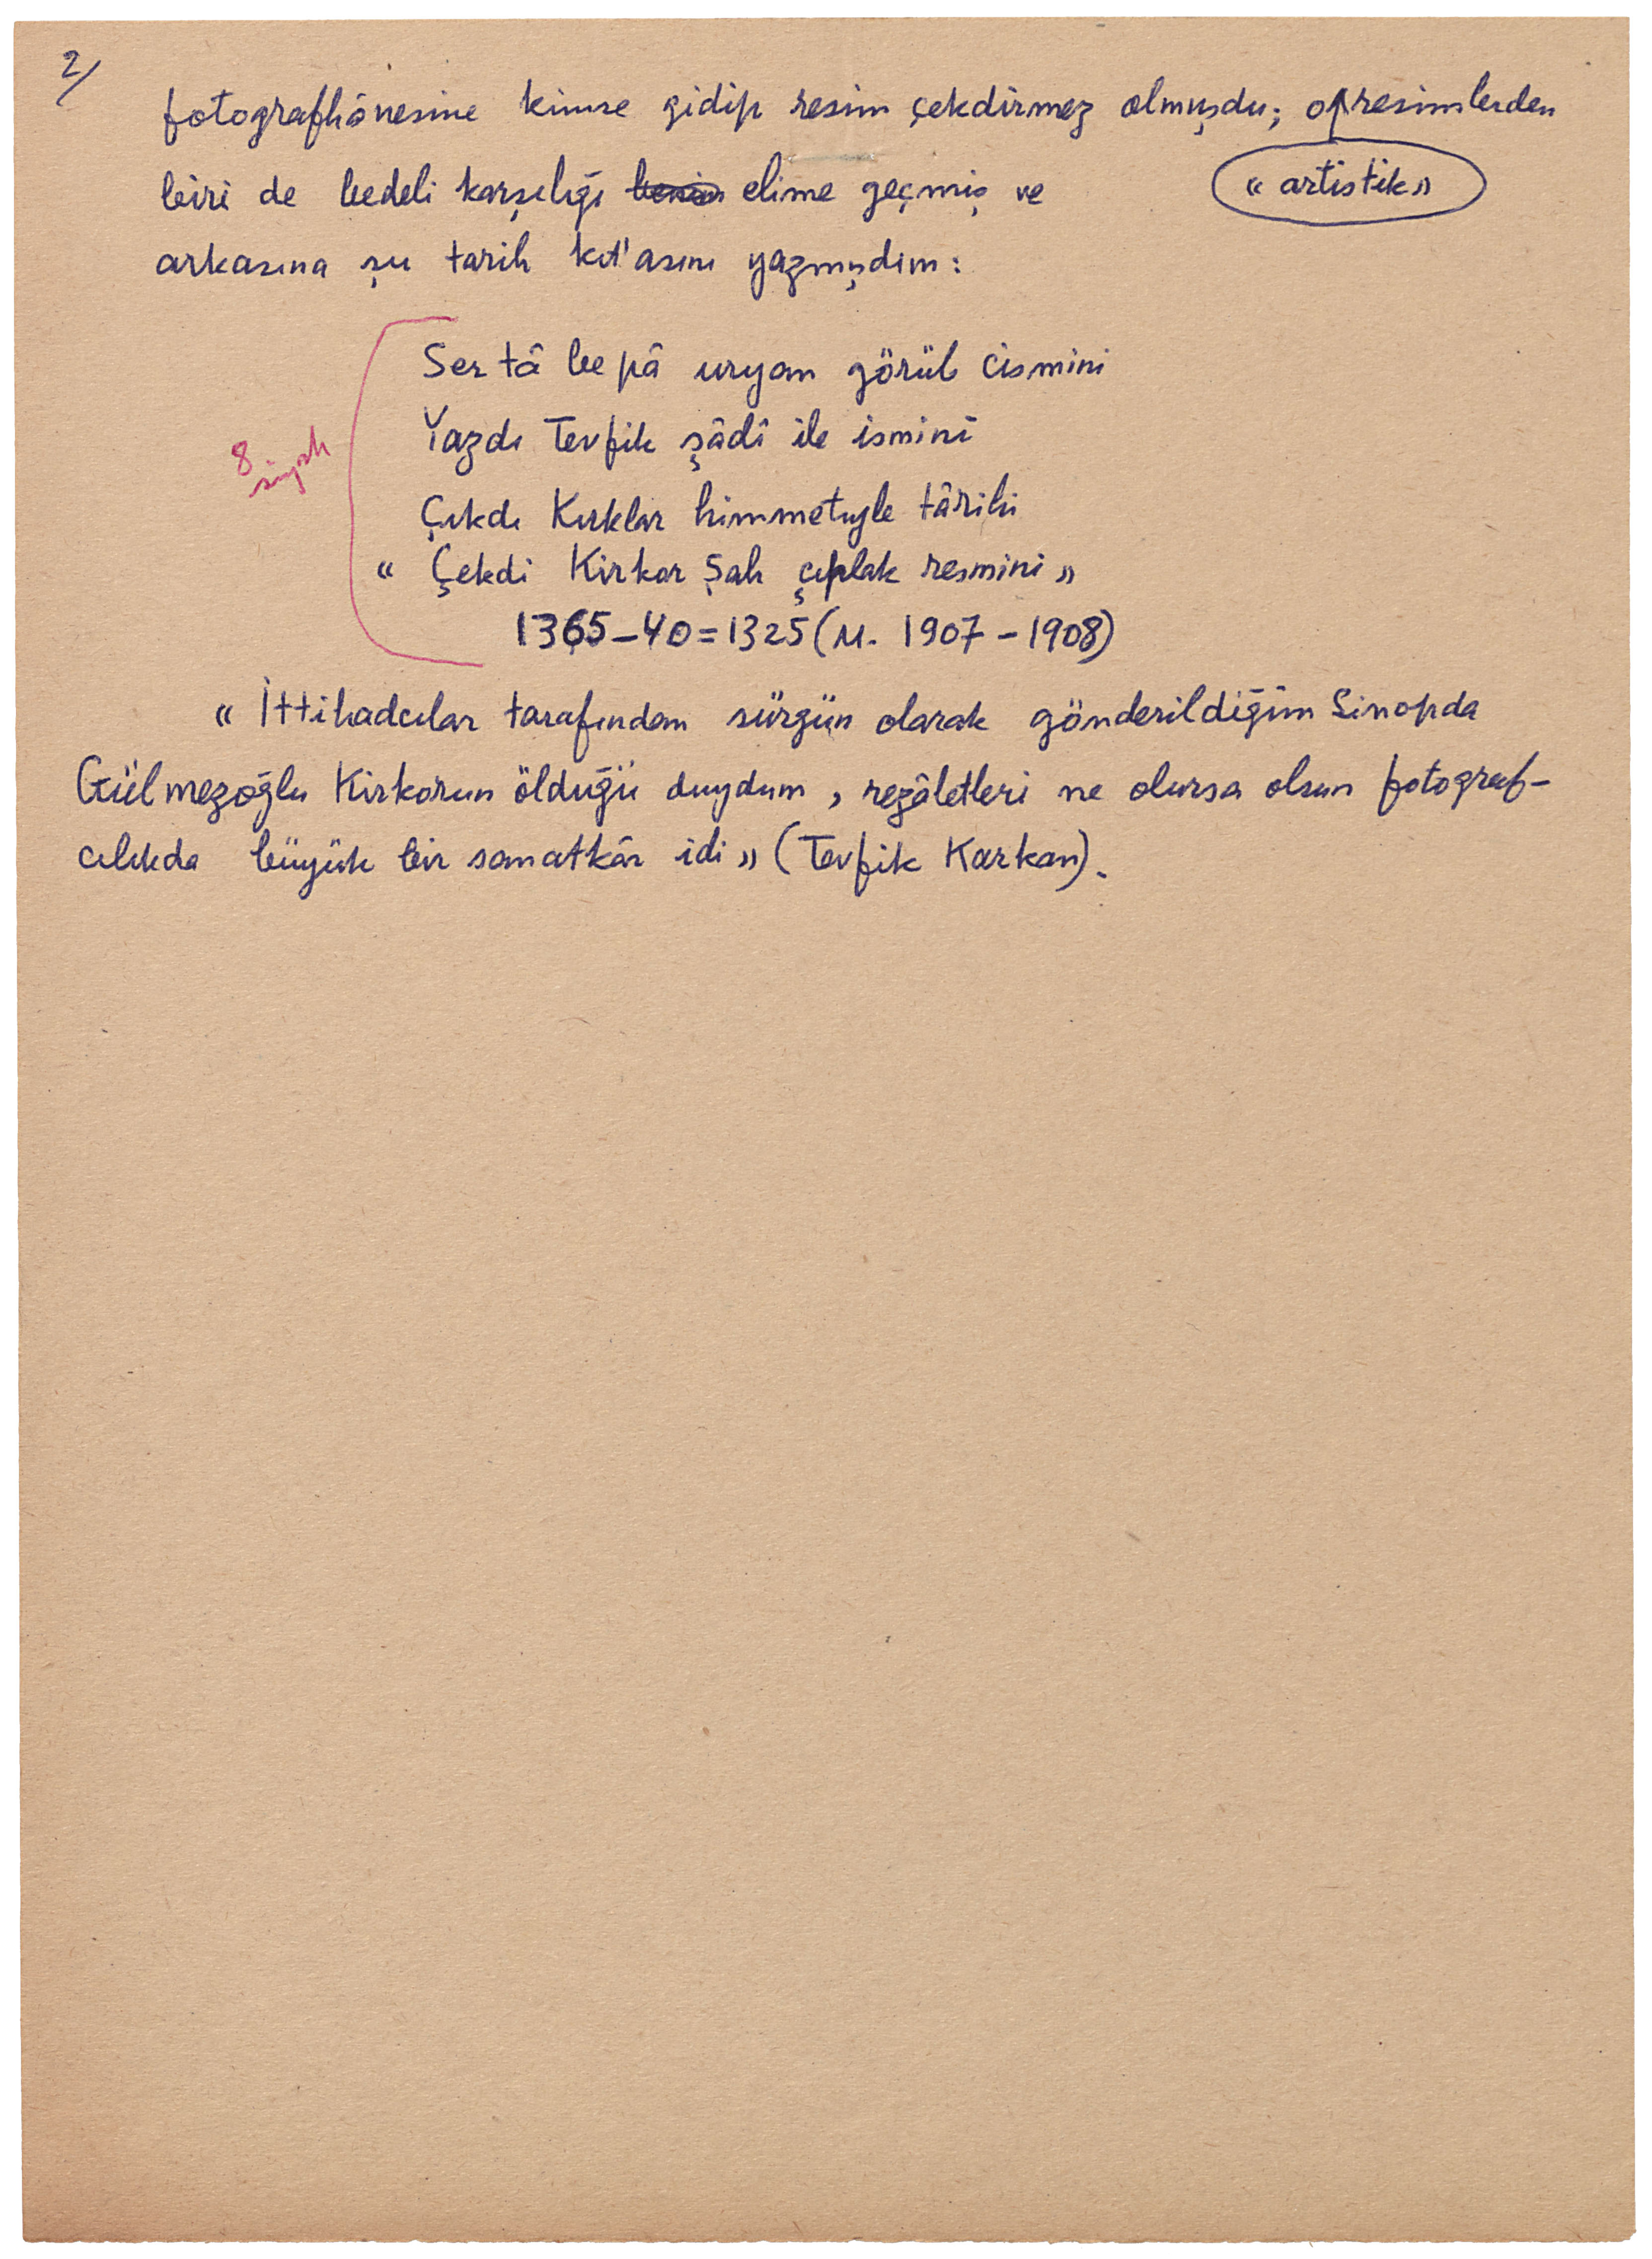 2/
fotografhânesine kimse gidip resim çekdirmez olmuşdu; o resimlerden
« artistik »
biri de bedeli karşılığı benim elime geçmiş ve
arkasına şu tarih kıt'asını yazmışdım:
Ser tâ be pâ uryan görüb cismini
Yazdı Tevfik şâdî ile ismini
8 siyah
Çıkdı Kırklar himmetiyle târihi
« Çekdi Kirkor Şah çıplak resmini »
1365-40=1325 (M. 1907-1908)
« İttihadcılar tarafından sürgün olarak gönderildiğim Sinopda
Gülmezoğlu Kirkorun öldüğü duydum, rezâletleri ne olursa olsun fotograf-
cılıkda büyük bir sanatkâr idi » (Tevfik Karkan).